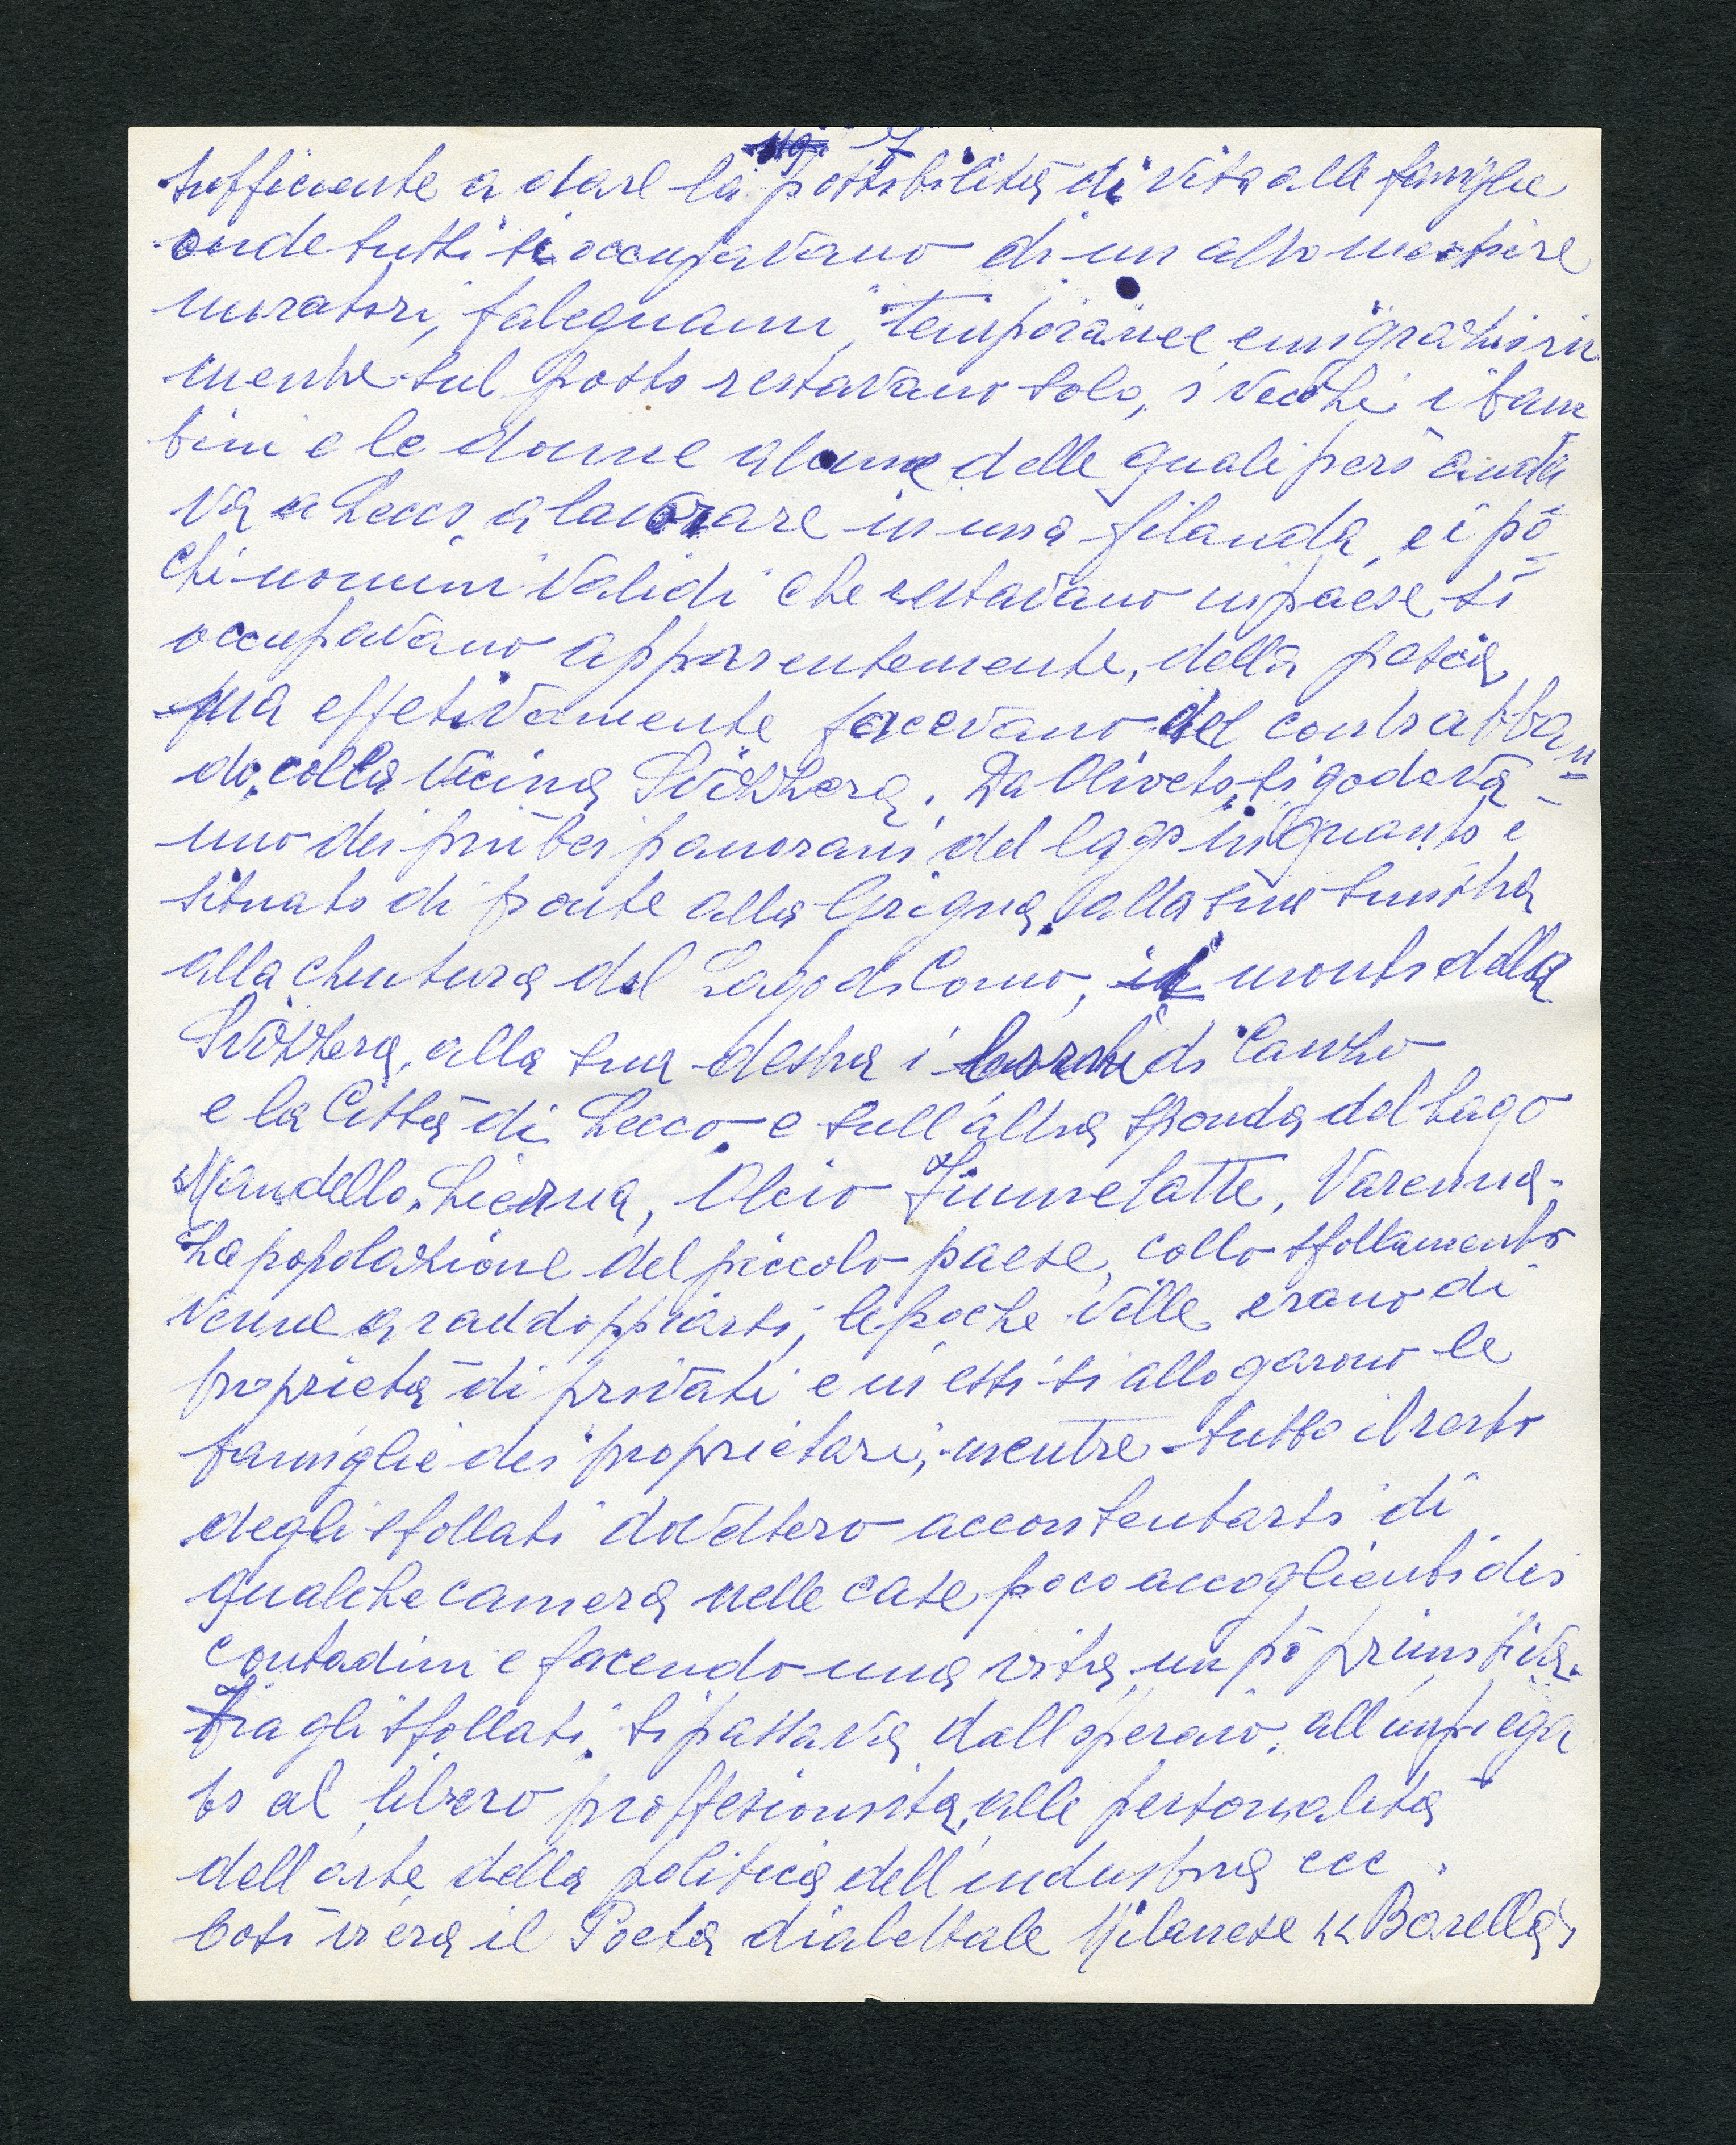 7
sufficiente a dare la possibilità di vita alle famiglie
onde tutti si occupavano di un altro mestiere
muratori, falegnami, temporanee emigrazioni in
mente sul posto restavano solo, i vecchi i bam
bini e le donne alcune delle quali però anda
va a Lecco a lavorare in una filanda, e i po=
chi uomini validi che restavano in paese si
occupavano apparentemente, della pesca
ma effetivamente facevano del contrabban=
do, colla vicina Svizzera. Da Oliveto, si godeva
uno dei più bei panorami del lago in quanto è
situato di fronte alla Grigna, alla sua sinistra
alla chiusura del Lago di Como, i monti della
Svizzera, alla sua destra i di Canzo
e la Città di Lecco e sull'altra sponda del Lago
Mandello, Lierna, Olcio Fiumelatte, Varenna.
La popolazione del piccolo paese, collo sfollamento
venne a raddoppiarsi, le poche ville erano di
proprietà di privati e in essi si allogarono le
famiglie dei proprietari, mentre tutto il resto
degli sfollati dovettero accontentarsi di
qualche camera nelle case poco accoglienti dei
contadini e facendo una vita un pò primitiva.
Fra gli sfollati, si passava dall'operaio, all'impiega
to al libero proffesionista, alle personalità
dell'arte della politica dell'industria ecc.
Così v'era il Poeta dialettale Milanese << Barella >>